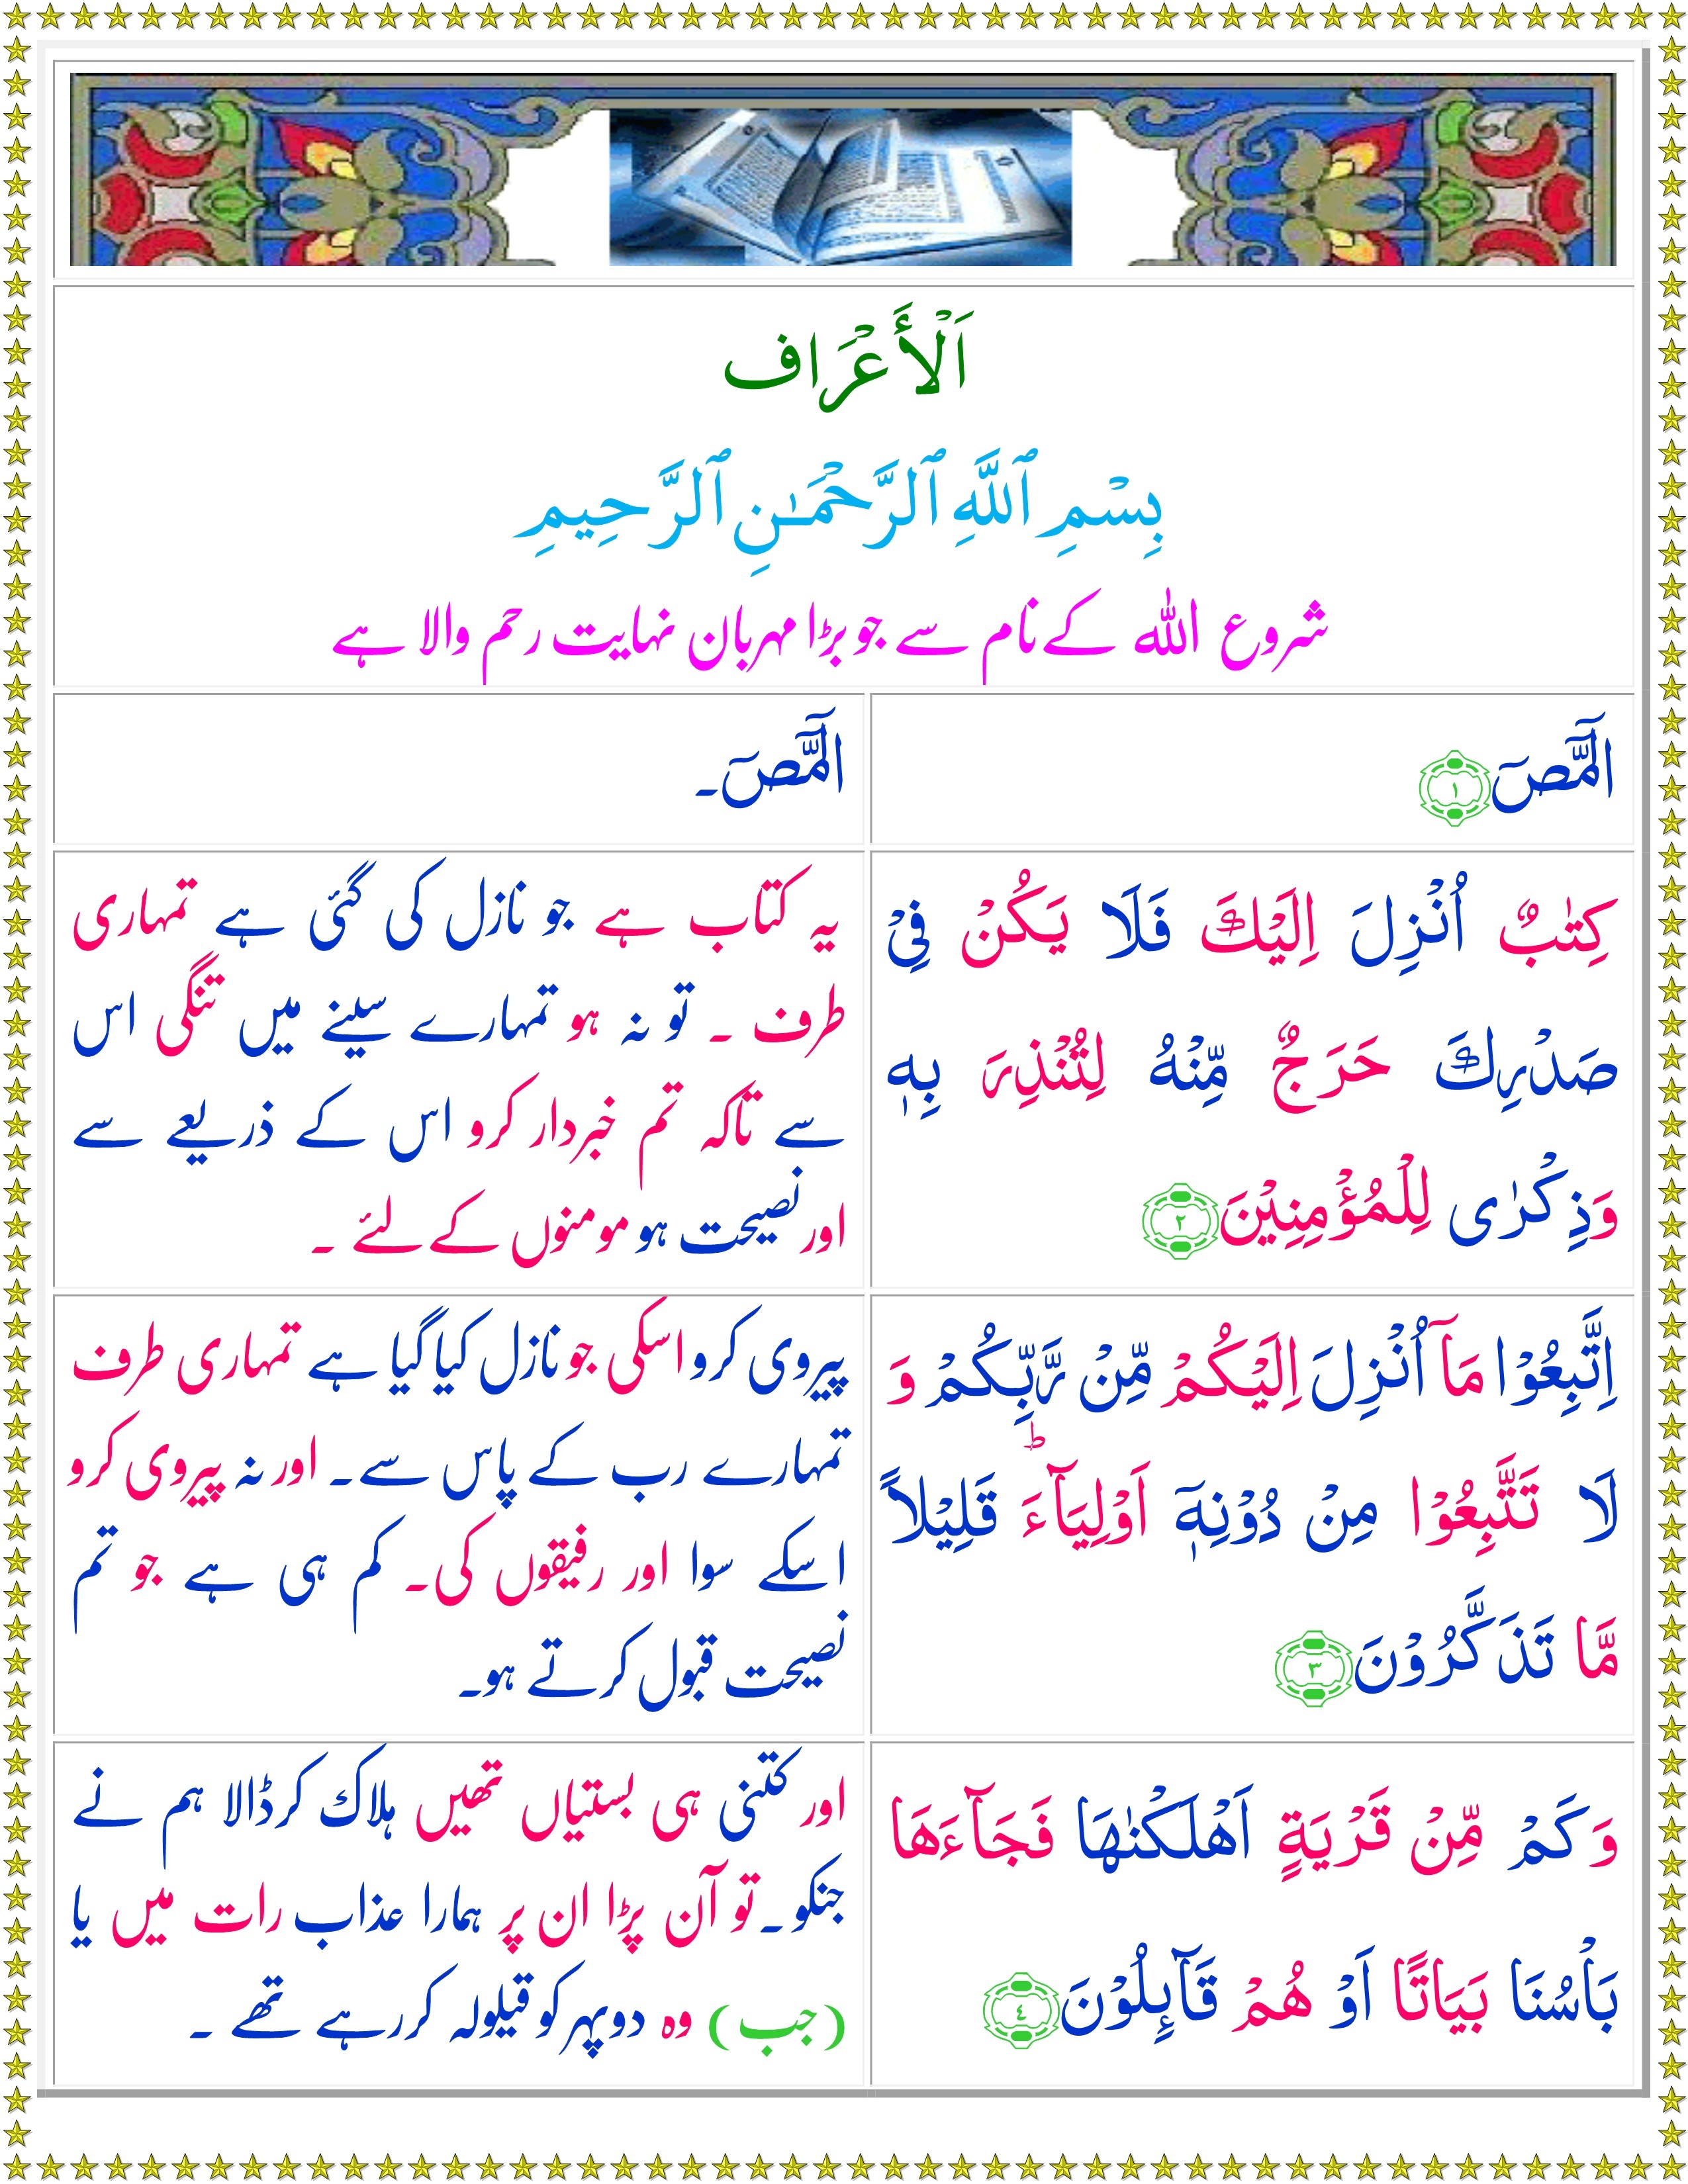 اَلْأَعْرَاف
بِسْمِ ٱللَّهِ ٱلرَّحْمَـٰنِ ٱلرَّحِيمِ
شروع اللہ کے نام سے جو بڑا مہربان نہایت رحم والا ہے
الٓمّٓصٓ ۱
الٓمّٓصٓ۔
كِتٰبٌ اُنْزِلَ اِلَيْكَ فَلَا يَكُنْ فِىْ
صَدْرِكَ حَرَجٌ مِّنْهُ لِتُنْذِرَ بِهٖ
وَذِكْرٰى لِلْمُؤْمِنِيْنَ ۲
یہ کتاب ہے جو نازل کی گئی ہے تمہاری
طرف ۔ تو نہ ہو تمہارے سینے میں تنگی اس
سے تاکہ تم خبردار کرو اس کے ذریعے سے
اور نصیحت ہو مومنوں کے لئے ۔
اِتَّبِعُوْا مَآ اُنْزِلَ اِلَيْكُمْ مِّنْ رَّبِّكُمْ وَ
لَا تَتَّبِعُوْا مِنْ دُوْنِهٖٓ اَوْلِيَآءَ ؕ قَلِيْلاً
مَّا تَذَكَّرُوْنَ ۳
پیروی کرو اسکی جو نازل کیا گیا ہے تمہاری طرف
تمہارے رب کے پاس سے۔ اور نہ پیروی کرو
اسکے سوا اور رفیقوں کی۔ کم ہی ہے جو تم
نصیحت قبول کرتے ہو۔
وَكَمْ مِّنْ قَرْيَةٍ اَهْلَكْنٰهَا فَجَآءَهَا
بَاْسُنَا بَيَاتًا اَوْ هُمْ قَآٮِٕلُوْنَ ٤
اور کتنی ہی بستیاں تھیں ہلاک کر ڈالا ہم نے
جنکو۔ تو آن پڑا ان پر ہمارا عذاب رات میں یا
(جب) وہ دوپہر کو قیلولہ کر رہے تھے ۔